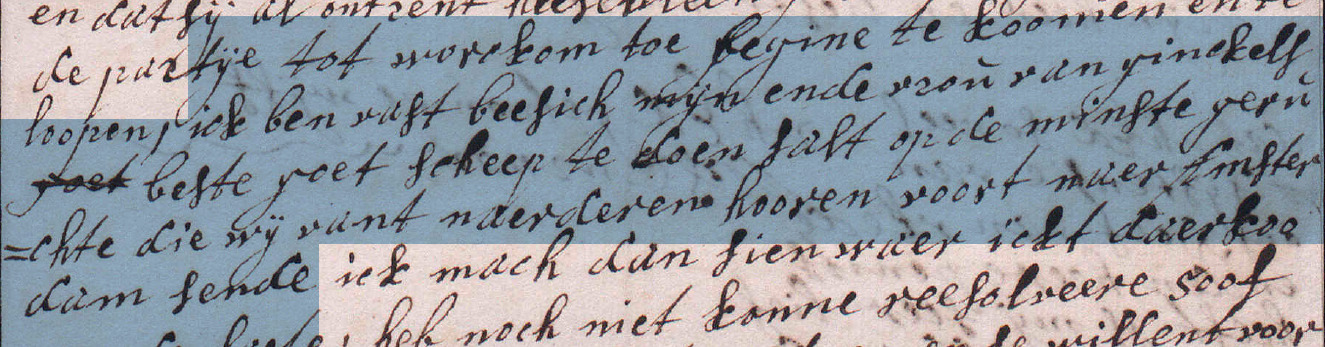 en dat sij al ontrent
de partÿe tot worckom toe begine te koomen en te
loopen, ick ben vast beesich mijn ende vroŭ van ginckels
goet beste goet scheep te doen salt op de minste gerŭ
=chte die wÿ vant naerderen hooren voort naer Amster
dam sende ick mach dan sien waer ickt daer koo
heb noch niet konne reesolveere soof
willent voor